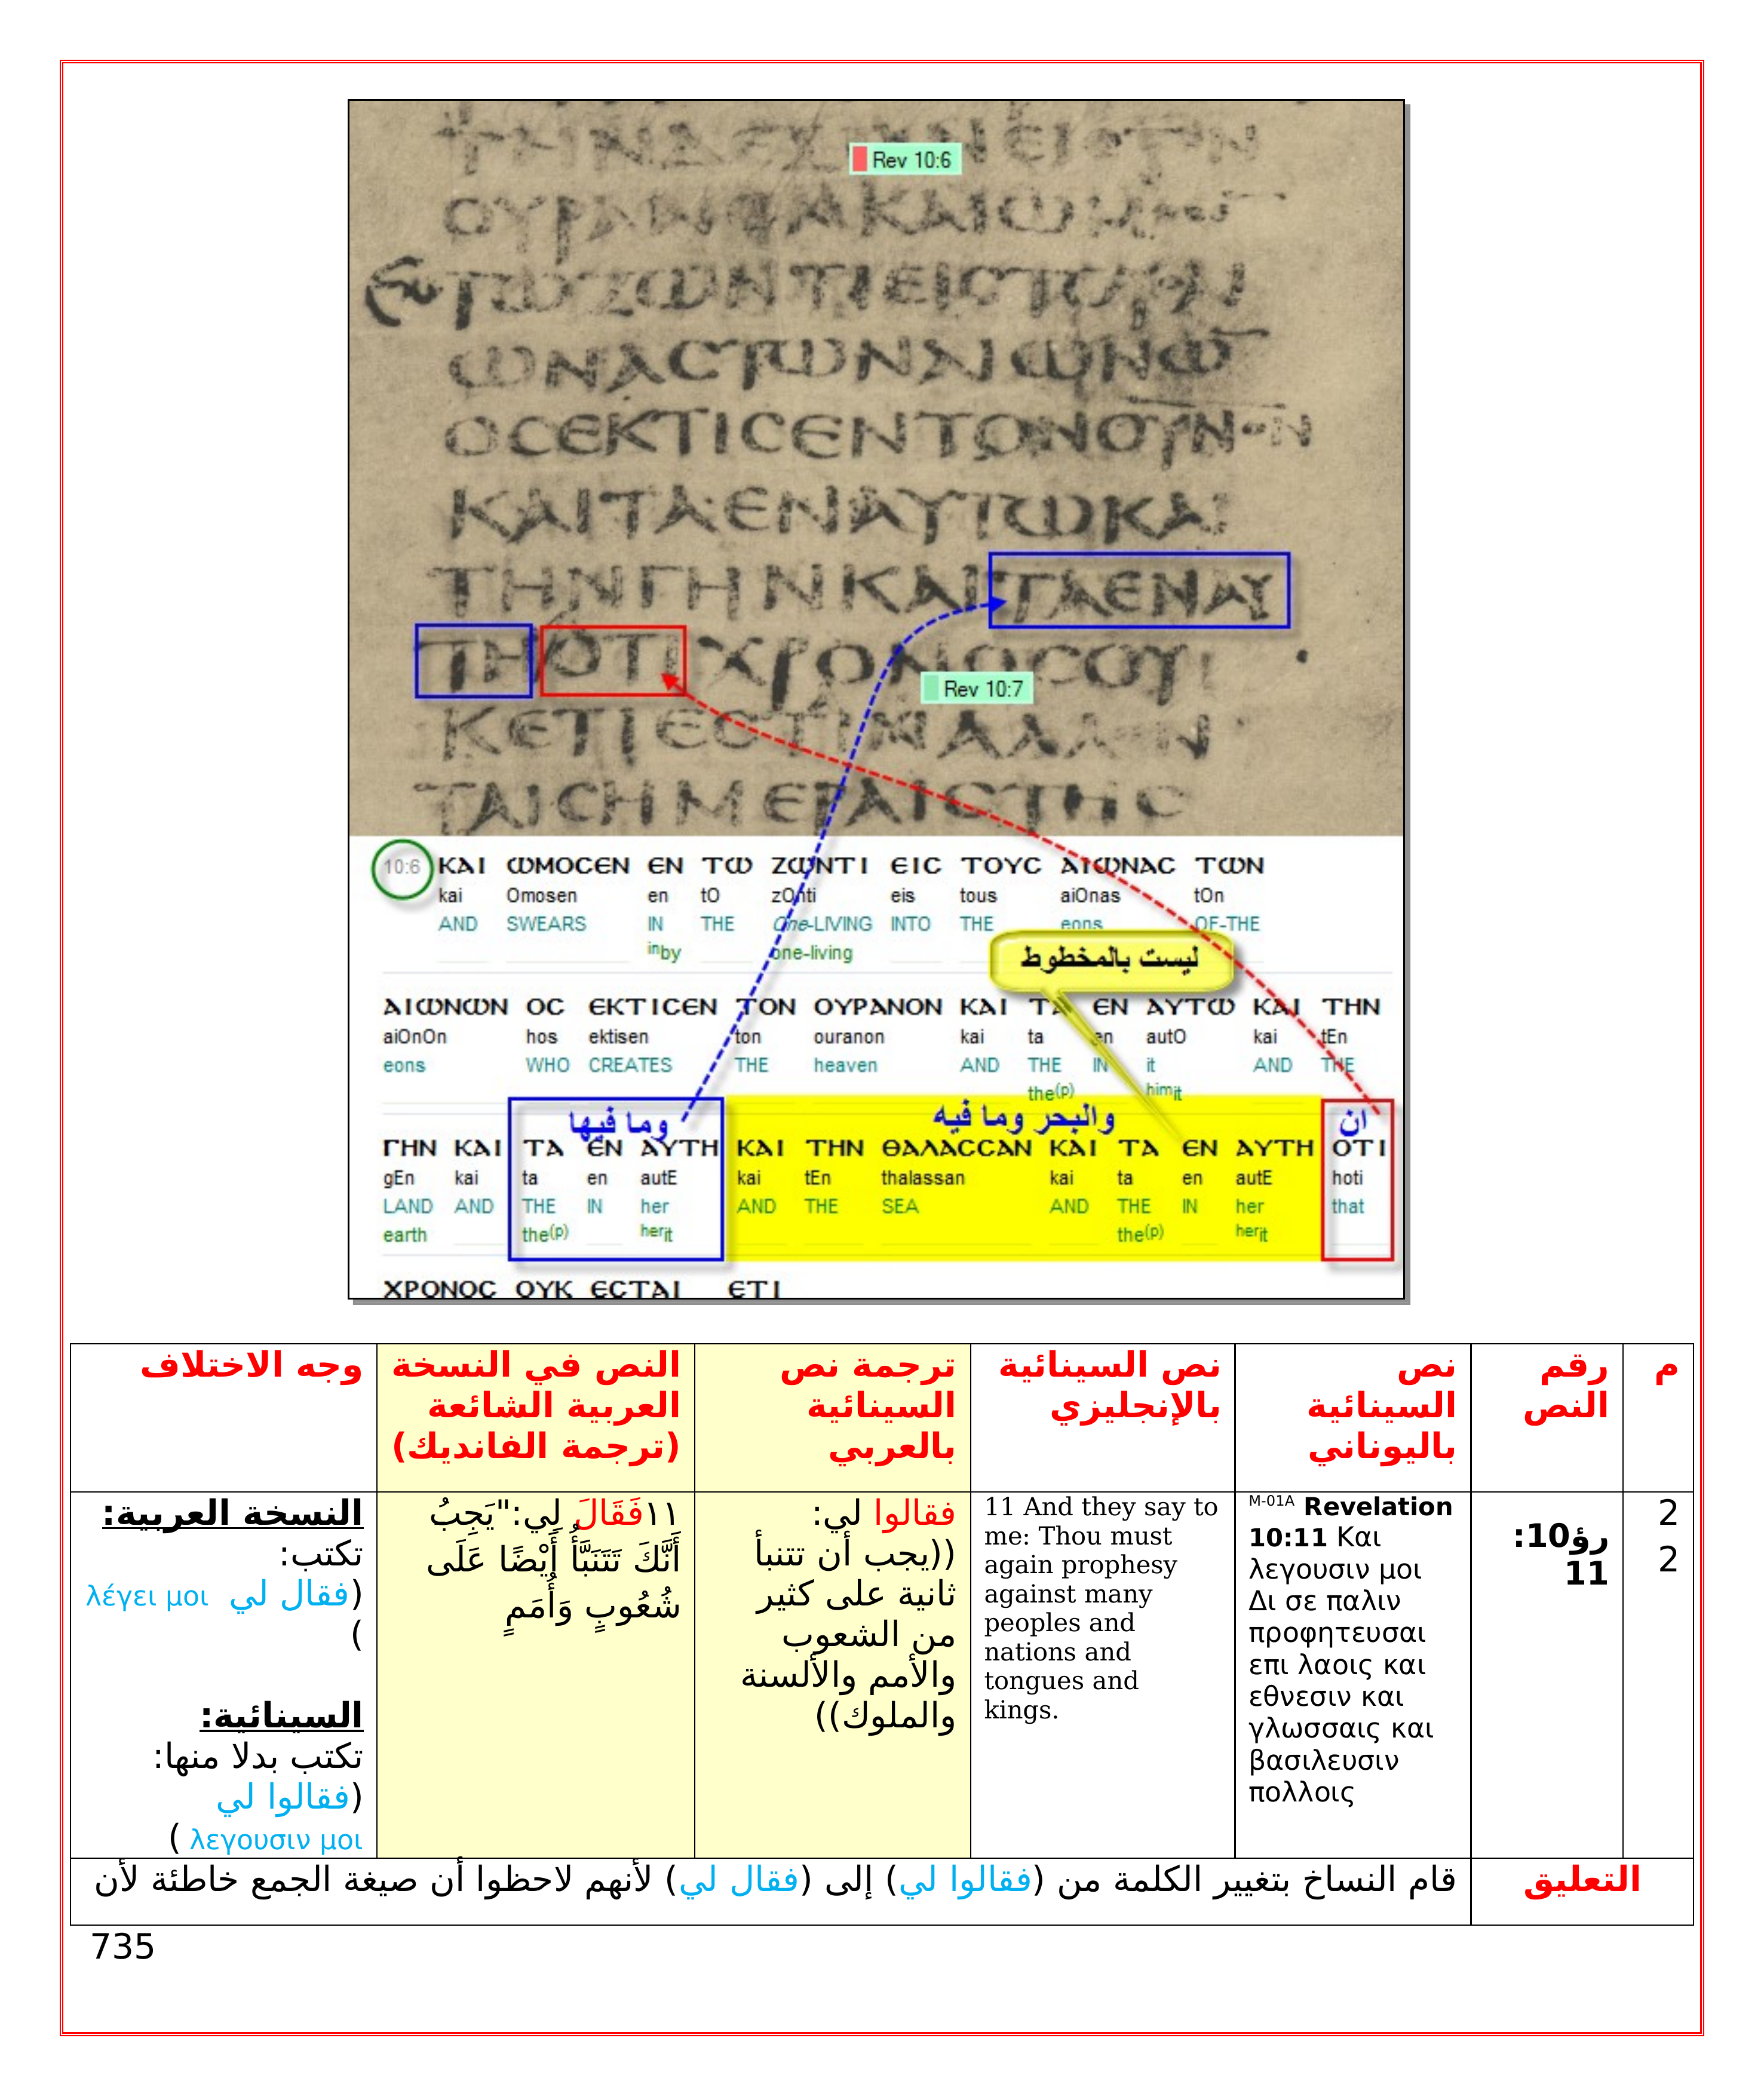 Rev 10:6
ΟΥΡΑΝΟΝ ΚΑΙ
ΤΩΖΩΝΤΙΕΙСΤΟΥС
ΩΝΑСΤΩΝΑΙΩΝΩ
ΟСЄΚΤΙСЄΝΤΟΝΟΥΝΟΝ
ΚΑΙΤΑЄΝΑΥΤΩΚΑΙ
ΤΗΝΓΗΝΚΑΙΤΑЄΝΑΥ
ΤΗΟΤΙΧΡΟΝΟСΟΥ
Rev 10:7
ΚЄΤΙЄСΤΙΝΑΛΛЄΝ
ΤΑΙСΗΜЄΡΑΙСΤΗС
10:6 ΚΑΙ ΩΜΟСЄΝ ЄΝ ΤΩ ΖΩΝΤΙ ЄΙС ΤΟΥС ΑΙΩΝΑС ΤΩΝ
kai Omosen en tO zOnti eis tous aiOnas tOn
AND SWEARS IN THE One-LIVING INTO THE eons OF-THE
inby one-living
ليست بالمخطوط
ΑΙΩΝΩΝ ΟС ЄΚΤΙСЄΝ ΤΟΝ ΟΥΡΑΝΟΝ ΚΑΙ ΤΑ ЄΝ ΑΥΤΩ ΚΑΙ ΤΗΝ
aiOnOn hos ektisen ton ouranon kai ta en autO kai tEn
eons WHO CREATES THE heaven AND THE IN it AND THE
the(p) himit
وما فيها والبحر وما فيه ان
ΓΗΝ ΚΑΙ ΤΑ ЄΝ ΑΥΤΗ ΚΑΙ ΤΗΝ ΘΑΛΑССΑΝ ΚΑΙ ΤΑ ЄΝ ΑΥΤΗ ΟΤΙ
gEn kai ta en autE kai tEn thalassan kai ta en autE hoti
LAND AND THE IN her AND THE SEA AND THE IN her that
earth the(p) herit the(p) herit
ΧΡΟΝΟС ΟΥΚ ЄСΤΑΙ ЄΤΙ
م
رقم
النص
نص
السينائية
باليوناني
نص السينائية
بالإنجليزي
ترجمة نص
السينائية
بالعربي
النص في النسخة
العربية الشائعة
(ترجمة الفانديك)
وجه الاختلاف
2
2
رؤ10:
11
M-01A Revelation
10:11 Και
λεγουσιν μοι
Δι σε παλιν
προφητευσαι
επι λαοις και
εθνεσιν και
γλωσσαις και
βασιλευσιν
πολλοις
11 And they say to
me: Thou must
again prophesy
against many
peoples and
nations and
tongues and
kings.
فقالوا لي:
((يجب أن تتنبأ
ثانية على كثير
من الشعوب
والأمم والألسنة
والملوك))
١١فَقَالَ لِي:"يَجِبُ
أَنَّكَ تَتَنَبَّأُ أَيْضًا عَلَى
شُعُوبٍ وَأُمَمٍ
النسخة العربية:
تكتب:
(فقال لي λέγει μοι
)
السينائية:
تكتب بدلا منها:
(فقالوا لي
λεγουσιν μοι )
التعليق
قام النساخ بتغيير الكلمة من (فقالوا لي) إلى (فقال لي) لأنهم لاحظوا أن صيغة الجمع خاطئة لأن
735